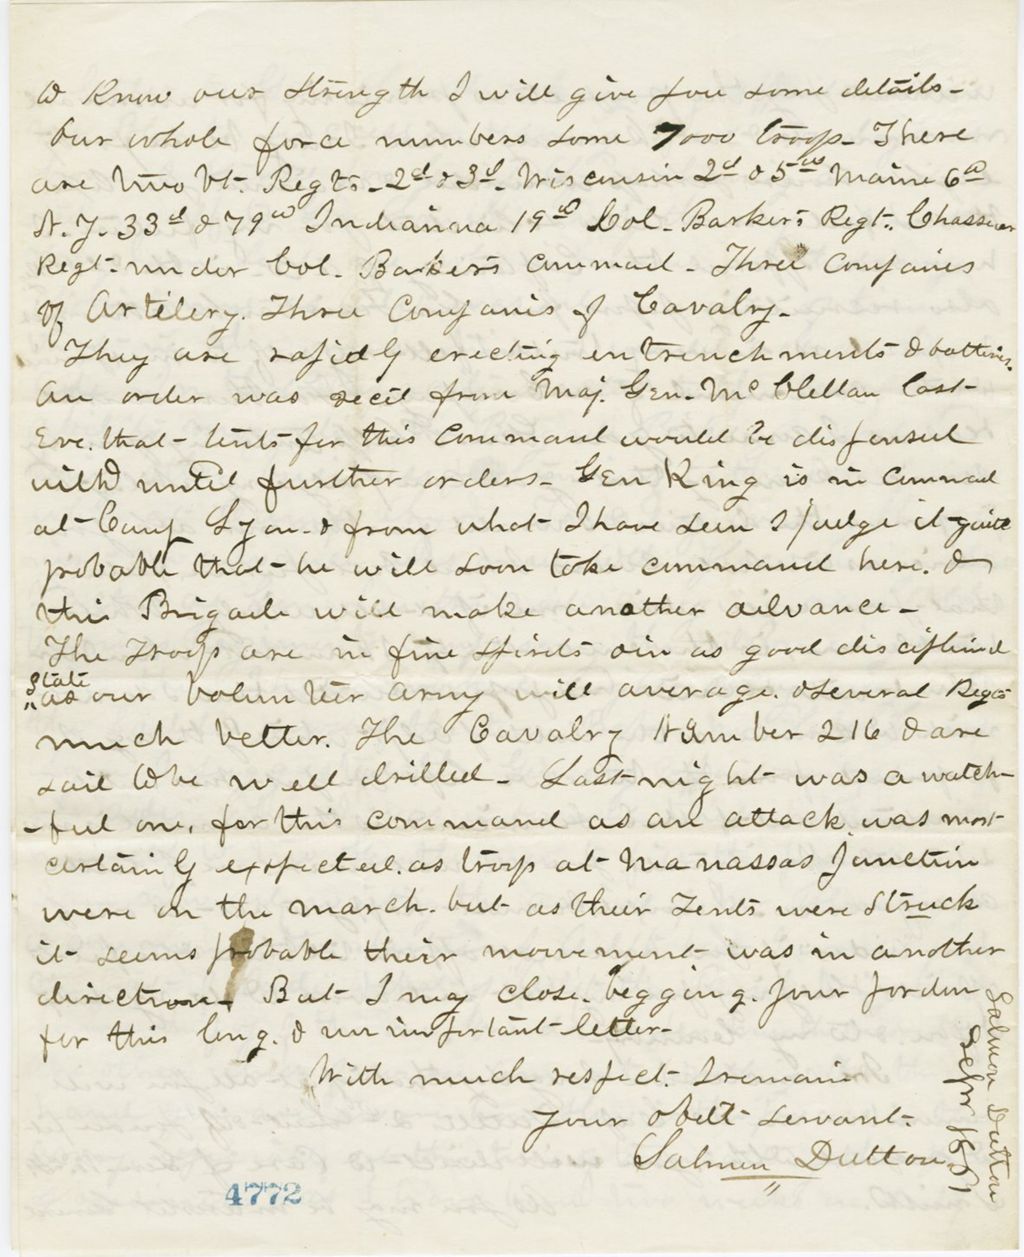 to Know our strength I will give you some details -
Our whole force numbers some 7000 troops - There
are two Vt. Regts - 2d & 3d - Wisconsin 2d & 5th Maine 6th
N.Y. 33d & 79th Indianna 19th Col. Barkers Regt. Chasseur
Regt - under Col. Barkers command - Three Companies
of Artilery. Three Companis of Cavalry -
They are rapidly erecting entrenchments & batteries.
An order was recd from Maj. Gen. Mc Clellan last
Eve. that - tents for this Command would be dispensed
with until further orders - Gen King is in Command
at Camp Lyon - & from what I have seen I judge it quite
probable that - he will soon take command here. &
this Brigade will make another advance -
The Troops are in fine spirits & in as good disciplined
State
" as our Volunteer army will average. & several Regts
much better. The Cavalry Number 216 & are
said to be well drilled - Last night was a watch-
-ful one, for this command as an attack was most
certainly expected. as troops at Manassas Junction
were on the march. but as their Tents were Struck
it seems probable their movement was in another
direction - But I may close. begging. your pardon
for this long. & unimportant letter -
With much respect. I remain
Your obdt servant.
Salmon Dutton
4772
Salmon Dutton
Septr 1861